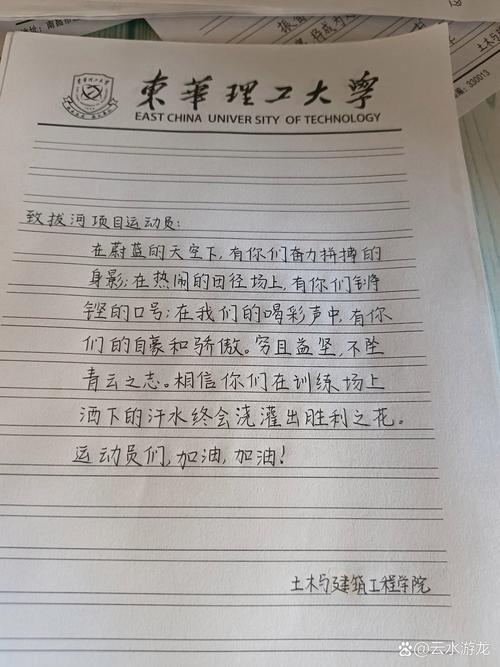 地址：南昌市
振奋
将成为
土木与
编：330013
東華理工大學
EAST CHINA UNIVERSITY OF TECHNOLOGY
致拔河项目运动员：
在蔚蓝的天空下，有你们奋力拼搏的
身影；在热闹的田径场上，有你们铮
铿的口号；在我们的喝彩声中，有你
们的自豪和骄傲。穷且益坚，不坠
青云之志。相信你们在训练场上
洒下的汗水终会浇灌出胜利之花。
运动员们，加油，加油！
土木与建筑工程学院
云水游龙